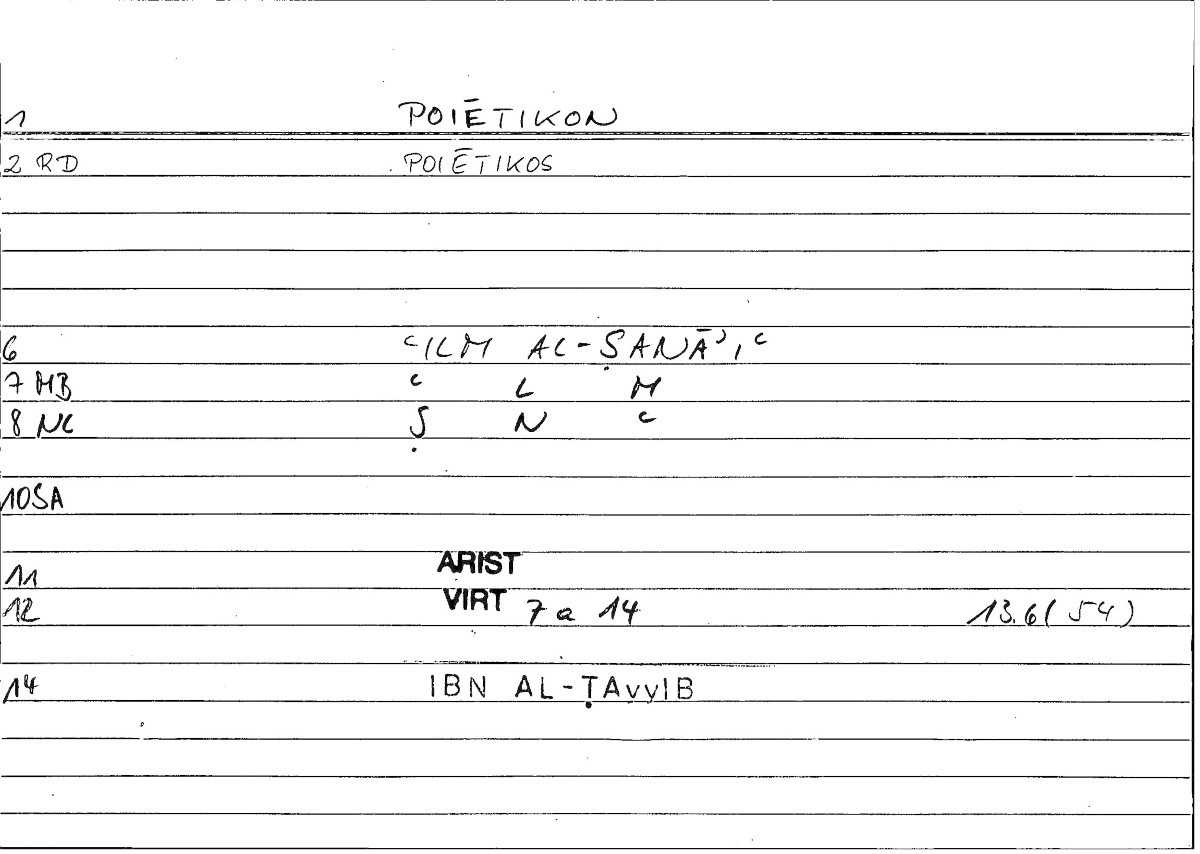 1 POIĒTIKON
2 RD POIĒTIKOS
6 ʿILM AL-ṢANĀʾIʿ
7 MB ʿ L M
8 NC Ṣ N ʿ
10 SA
11 ARIST
12 VIRT 7 a 14 13.6(54)
14 IBN AL-ṬAyyIB